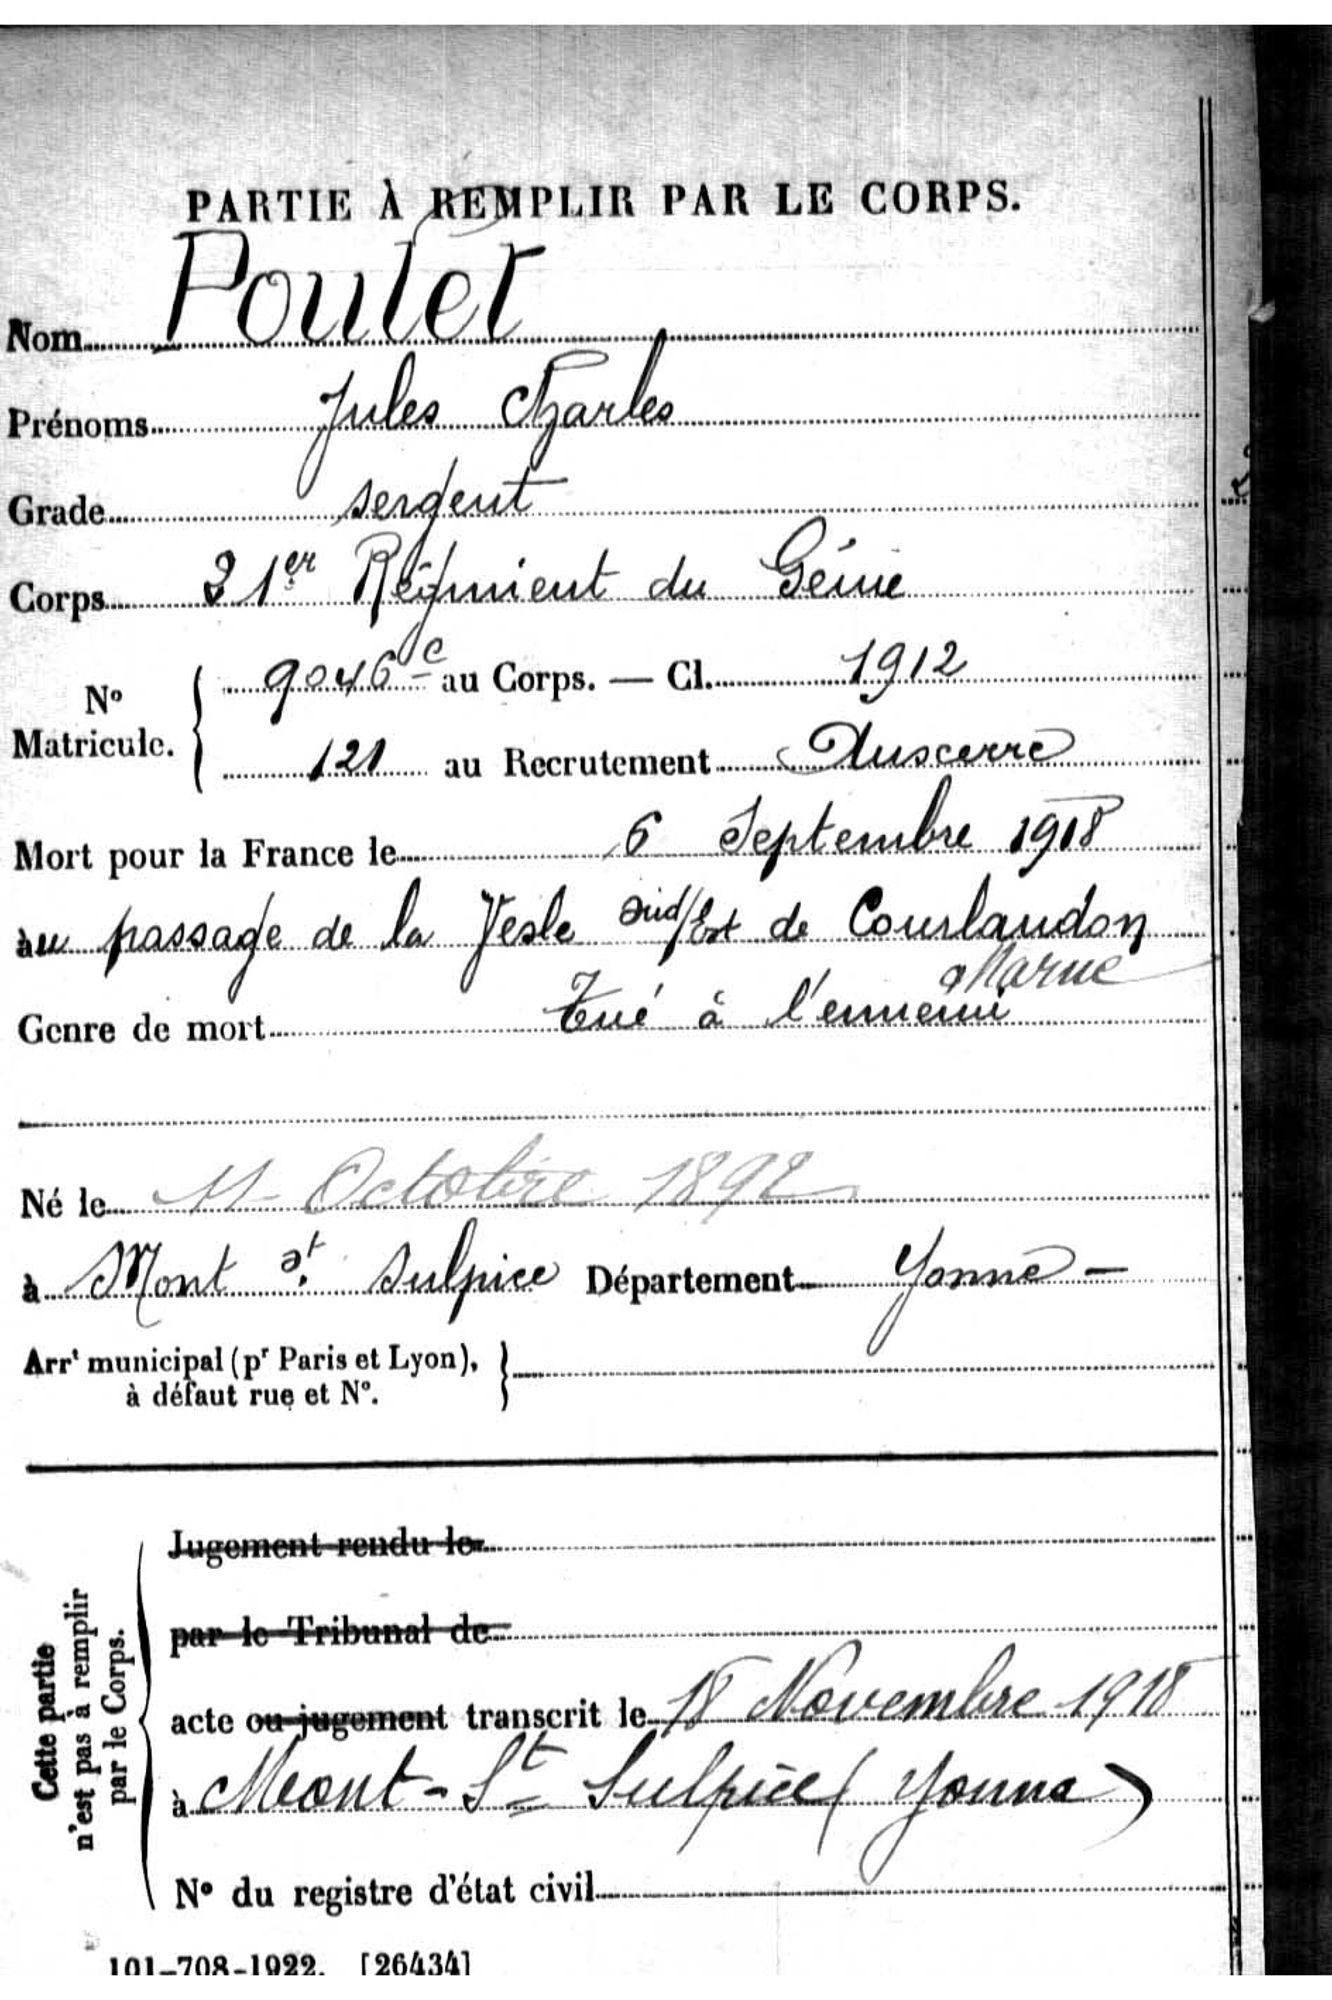 PARTIE À REMPLIR PAR LE CORPS.
Nom Poulet
Prénoms Jules Charles
Grade sergent
Corps 21er Régiment du Génie
No Matricule. 9046 c au Corps. — Cl. 1912
121 au Recrutement Auxerre
Mort pour la France le 6 Septembre 1918
au passage de la Vesle Sud/Est de Courlandon
Marne
Genre de mort Tué à l'ennemi
Né le 11 Octobre 1892
à Mont St Sulpice Département Yonne —
Arrt municipal (pr Paris et Lyon),
à défaut rue et No.
Cette partie
n'est pas à remplir
par le Corps.
Jugement rendu le
par le Tribunal de
acte ou jugement transcrit le 18 Novembre 1918
à Mont-St Sulpice (Yonne)
No du registre d'état civil
101-708-1922. [26434]